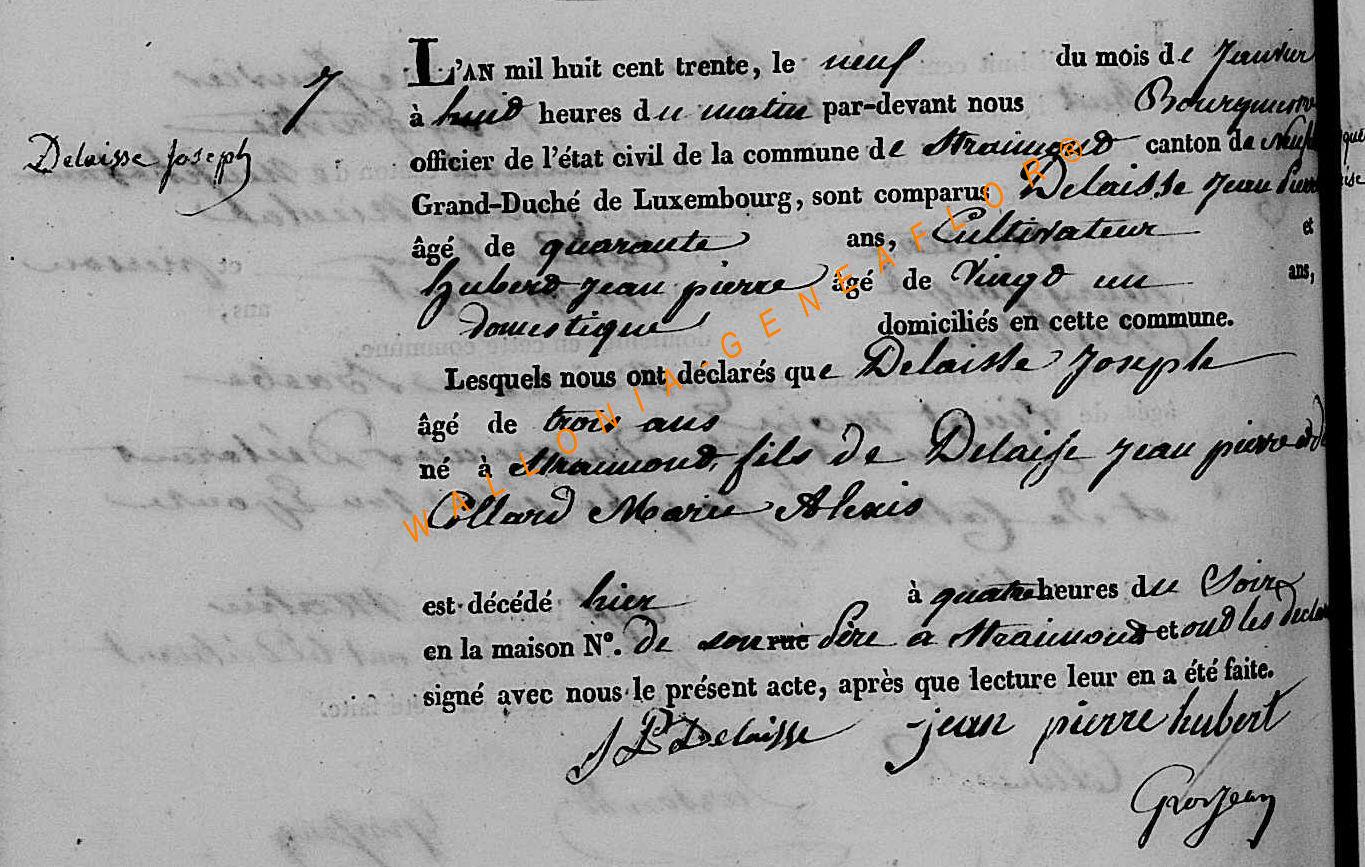 7
Delaisse Joseph
L'AN mil huit cent trente, le neuf du mois de Janvier
à huit heures du matin par-devant nous Bourgmestre
officier de l'état civil de la commune de Straimont canton de Neuf
Grand-Duché de Luxembourg, sont comparus Delaisse Jean Pierre
âgé de quarante ans, Cultivateur et
hubert Jean pierre âgé de Vingt un ans,
domestique domiciliés en cette commune.
Lesquels nous ont déclarés que Delaisse Joseph
âgé de trois ans
né à Straimont, fils de Delaisse Jean pierre et de
Collard Marie Alexis
est décédé hier à quatre heures du Soir
en la maison N°. de son rue Père a Straimont et ont les decla
signé avec nous le présent acte, après que lecture leur en a été faite.
J P Delaisse jean pierre hubert
Grosjean
WALLONIA-GENEAFLOR®